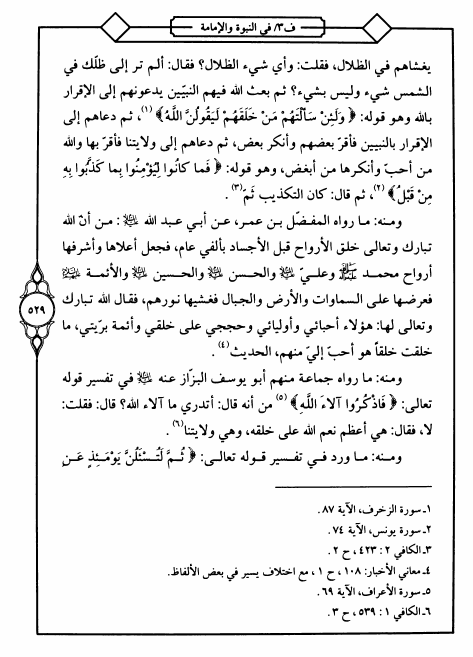 ف٣/ في النبوة والإمامة
يغشاهم في الظلال، فقلت: وأي شيء الظلال؟ فقال: ألم تر إلى ظلّك في
الشمس شيء وليس بشيء؟ ثم بعث الله فيهم النبيّين يدعونهم إلى الإقرار
بالله وهو قوله: ﴿ وَلَئِنْ سَأَلْتَهُمْ مَنْ خَلَقَهُمْ لَيَقُولُنَّ اللَّهُ﴾ (١)، ثم دعاهم إلى
الإقرار بالنبيين فأقرّ بعضهم وأنكر بعض، ثم دعاهم إلى ولايتنا فأقرّ بها والله
من أحبّ وأنكرها من أبغض، وهو قوله: ﴿ فَما كانُوا لِيُؤْمِنُوا بِما كَذَّبُوا بِهِ
مِنْ قَبْلُ﴾ (٢)، ثم قال: كان التكذيب ثمّ (٣) .
ومنه: ما رواه المفضّل بن عمر، عن أبي عبد الله ﷺ: من أنّ الله
تبارك وتعالى خلق الأرواح قبل الأجساد بألفي عام، فجعل أعلاها وأشرفها
أرواح محمد ﷺ وعليّ والحسن والحسين والأئمة
فعرضها على السماوات والأرض والجبال فغشيها نورهم، فقال الله تبارك
وتعالى لها: هؤلاء أحبائي وأوليائي وحججي على خلقي وأئمة بريّتي، ما
خلقت خلقاً هو أحبّ إليّ منهم، الحديث (٤) .
ومنه: ما رواه جماعة منهم أبو يوسف البزّاز عنه في تفسير قوله
تعالى: ﴿ فَاذْكُرُوا آلاءَ اللَّهِ﴾ (٥) من أنه قال: أتدري ما آلاء الله؟ قال: فقلت:
لا، فقال: هي أعظم نعم الله على خلقه، وهي ولايتنا (٦) .
ومنه: ما ورد في تفسير قوله تعالى: ﴿ ثُمَّ لَتُسْئَلُنَّ يَوْمَئِذٍ عَنِ
٥٢٩
١ـ سورة الزخرف، الآية ٨٧ .
٢ـ سورة يونس، الآية ٧٤ .
٣ـ الكافي ٢ : ٤٢٣ ، ح ٢ .
٤ـ معاني الأخبار: ١٠٨ ، ح ١ ، مع اختلاف يسير في بعض الألفاظ.
٥ـ سورة الأعراف، الآية ٦٩ .
٦ـ الكافي ١ : ٥٣٩ ، ح ٣ .